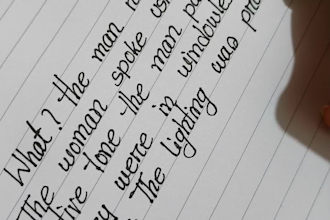 What? the man
The woman spoke
five tone the man
were in windowle
The lighting was pro